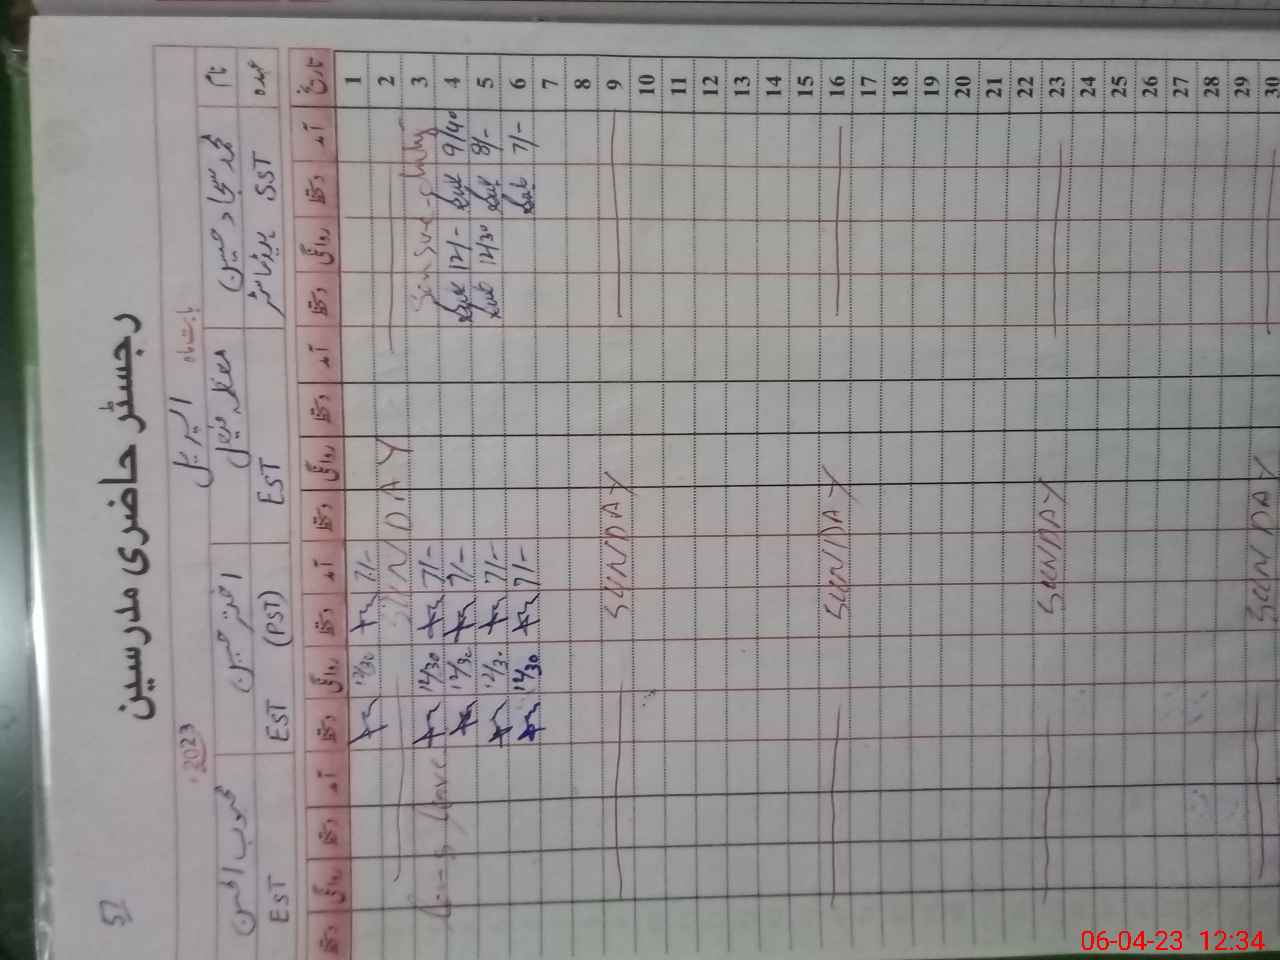 51
رجسٹر حاضری مدرسین
بابت ماہ اپریل 2023
نام محمد سجاد حسین اختر حسین محبوب الحسن
عہدہ SST EST EST (PST) EST
تاریخ آمد دستخط روانگی دستخط آمد دستخط روانگی دستخط آمد دستخط روانگی دستخط آمد دستخط روانگی دستخط
1 7/- 12/30
2 SUNDAY
3 7/- 12/30
4 9/40 12/- 7/- 12/30
5 8/- 12/30 7/- 12/30
6 7/- 7/- 12/30
7
8
9 SUNDAY
10
11
12
13
14
15
16 SUNDAY
17
18
19
20
21
22
23 SUNDAY
24
25
26
27
28
29
30 SUNDAY
06-04-23 12:34